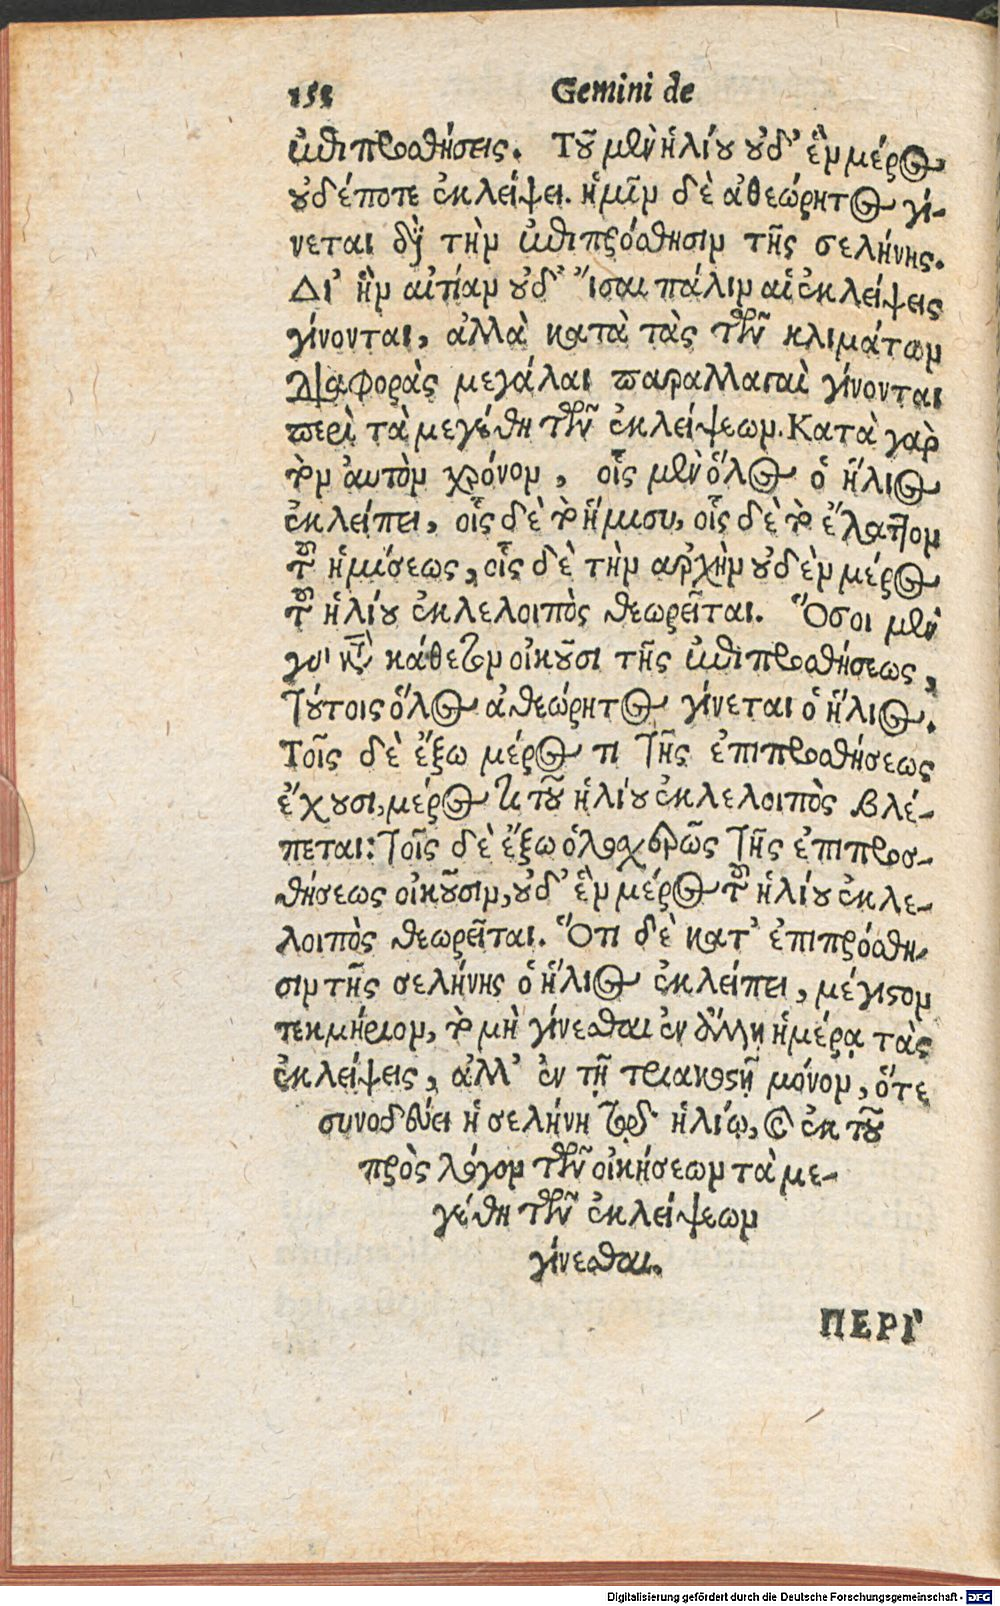 155 Gemini de
ἐπιπροσθήσεις. Τοῦ μὲν ἡλίου οὐδ' ἓν μέρος
οὐδέποτε ἐκλείψει. ἡμῖν δὲ ἀθεώρητος γί-
νεται διὰ τὴν ἐπιπρόσθησιν τῆς σελήνης.
Δι' ἣν αἰτίαν οὐδ' ἴσαι πάλιν αἱ ἐκλείψεις
γίνονται, ἀλλὰ κατὰ τὰς τῶν κλιμάτων
διαφορὰς μεγάλαι παραλλαγαὶ γίνονται
περὶ τὰ μεγέθη τῶν ἐκλείψεων. Κατὰ γὰρ
τὸν αὐτὸν χρόνον, οἷς μὲν ὅλος ὁ ἥλιος
ἐκλείπει, οἷς δὲ τὸ ἥμισυ, οἷς δὲ τὸ ἔλαττον
τοῦ ἡμίσεως, οἷς δὲ τὴν ἀρχὴν οὐδὲν μέρος
τοῦ ἡλίου ἐκλελοιπὸς θεωρεῖται. Ὅσοι μὲν
γὰρ κατὰ κάθετον οἰκοῦσι τῆς ἐπιπροσθήσεως,
τούτοις ὅλος ἀθεώρητος γίνεται ὁ ἥλιος.
Τοῖς δὲ ἔξω μέρος τι τῆς ἐπιπροσθήσεως
ἔχουσι, μέρος τι τοῦ ἡλίου ἐκλελοιπὸς βλέ-
πεται: τοῖς δὲ ἔξω ὁλοσχερῶς τῆς ἐπιπροσ-
θήσεως οἰκοῦσιν, οὐδ' ἓν μέρος τοῦ ἡλίου ἐκλε-
λοιπὸς θεωρεῖται. Ὅτι δὲ κατ' ἐπιπρόσθη-
σιν τῆς σελήνης ὁ ἥλιος ἐκλείπει, μέγιστον
τεκμήριον, τὸ μὴ γίνεσθαι ἐν ἄλλῃ ἡμέρᾳ τὰς
ἐκλείψεις, ἀλλ' ἐν τῇ τριακοστῇ μόνον, ὅτε
συνοδεύει ἡ σελήνη τῷ ἡλίῳ, καὶ ἐκ τοῦ
πρὸς λόγον τῶν οἰκήσεων τὰ με-
γέθη τῶν ἐκλείψεων
γίνεσθαι.
ΠΕΡΙ'
Digitalisierung gefördert durch die Deutsche Forschungsgemeinschaft - DFG